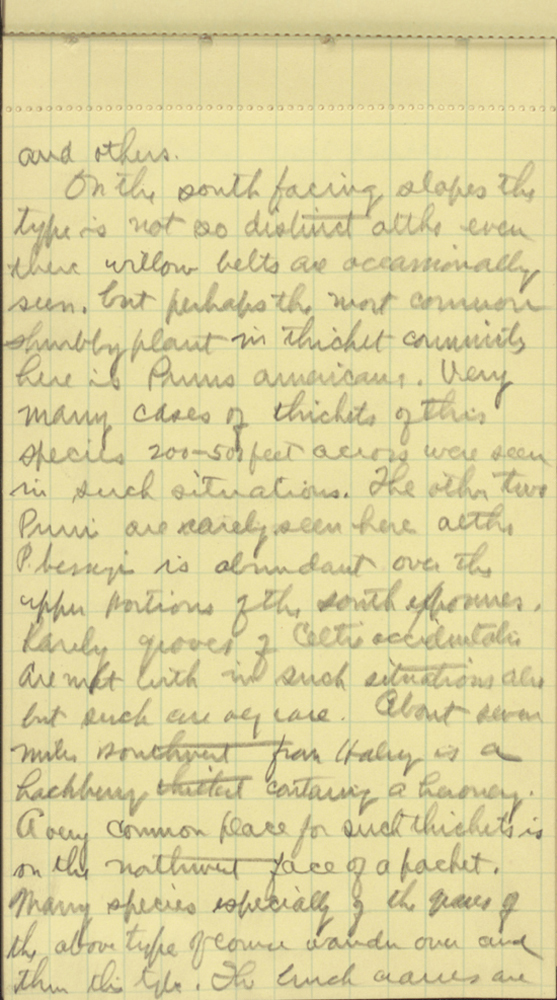 and others.
On the south facing slopes the
type is not so distinct altho even
there willow belts are occassionally
seen, but perhaps the most common
shrubby plant in thicket community
here is Prunus americana. Very
many cases of thickets of this
species 200-500 feet across were seen
in such situations. The other two
Pruni are rarely seen here altho
P. besseyi is abundant over the
upper portions of the south exposures.
Rarely groves of Celtis occidentalis
are met with in such situations also
but such are very rare. About seven
miles southwest from Halsey is a
hackberry thicket containing a heronry.
A very common place for such thickets is
on the northwest face of a pocket.
Many species especially of the grasses of
the above type of course wander over and
thru this type. The bunch grasses are